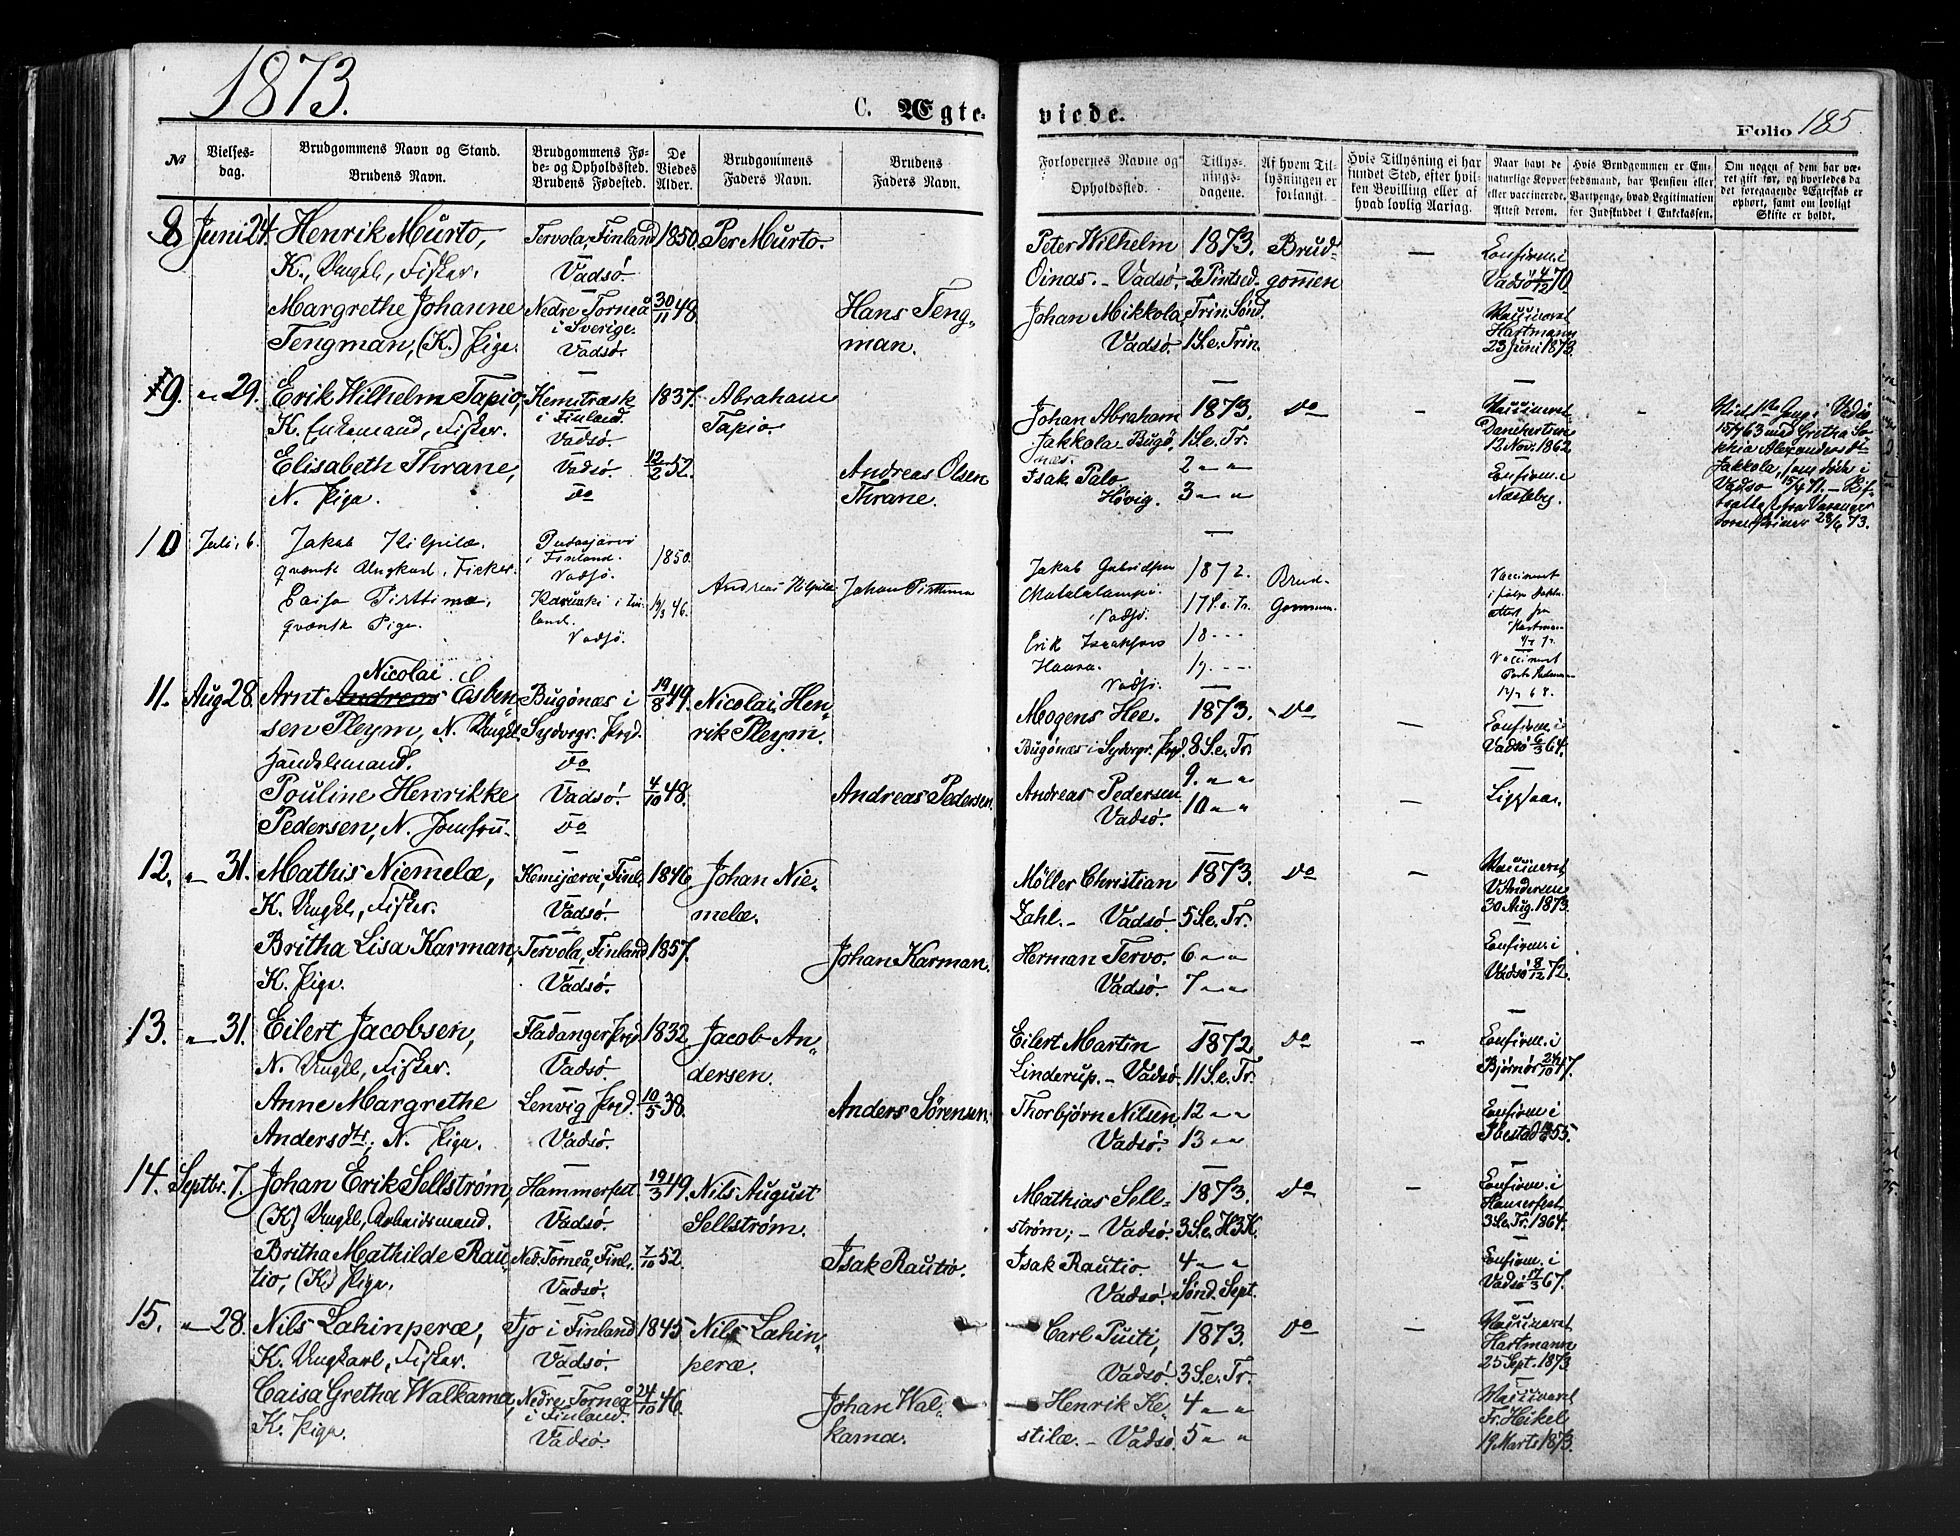 1873.
C. Ægte-
viede.
Folio 185.
№
Vielses-
dag.
Brudgommens Navn og Stand.
Brudens Navn.
Brudgommens Fø-
de- og Opholdssted.
Brudens Fødested.
De
Viedes
Alder.
Brudgommens
Faders Navn.
Brudens
Faders Navn.
Forlovernes Navne og
Opholdssted.
Tillys-
nings-
dagene.
Af hvem Til-
lysningen er
forlangt.
Hvis Tillysning ei har
fundet Sted, efter hvil-
ken Bevilling eller af
hvad lovlig Aarsag.
Naar havt de
naturlige Kopper
eller vaccinerede.
Attest derom.
Hvis Brudgommen er Em-
bedsmand, har Pension eller
Vartpenge, hvad Legitimation
for Indskuddet i Enkekassen.
Om nogen af dem har væ-
ret gift før, og hvorledes da
det foregaaende Ægteskab er
ophørt, samt om lovligt
Skifte er holdt.
8 Juni 24. Henrik Murto, Tervola, Finland 1850. Per Murto. Peter Wilhelm 1873. Brud-
K., Ungk., Fisker. Vadsø. Oinas. - Vadsø. 2 Pintsed. gommen — Confirm. i Vadsø 4/12 70
Margrethe Johanne Nedre Torneå 30/11 48. Hans Teng- Johan Mikkola, Trin. Sønd. Vaccineret
Tengman, (K.) Pige. i Sverige. Vadsø. man. Vadsø. 1 S. e. Trin. Hartmann 23 Juni 1873.
9. " 29. Erik Wilhelm Tapio, Kemitræsk 1837. Abraham Johan Abraham 1873. Do - Vaccineret -
K. Enkemand, Fisker. i Finland. Vadsø. Tapio. Jakkola, Bugø- 1 S. e. Tr. 12 Nov. 1862
næs. 2 " "
Elisabeth Thrane, Vadsø. 12/2 52. Andreas Olsen Isak Palo Confirm. i
N. Pige. Do Thrane. Høvig. 3 " " Næsseby.
15/4 63 med Gretha So-
phia Alexandersdtr
Jakkola, som døde i
Vadsø 15/4 71. - Skif-
teattest fra Varanger
Sorenskriver 28/6 73.
10 Juli 6. Jakob Kilpilæ. Pudasjärvi 1850. Andreas Kilpilæ Jakob Gabrielsen 1872. Brud-
qvænsk Ungkarl, Fisker. i Finland. Vadsø. Vadsø. 17 S. e. Tr. Gommen.
Caisa Pirttima, Karunki i Fin- 19/3 46. Johan Pirttima Erik Isaaksen 18 - - -
qvænsk Pige. land. Vadsø. Haara. Vadsø. 19 - - -
Nicolai
11. Aug 28. Arnt Andreas Esben- Bugønæs i 19/8 49. Nicolai Hen- Mogens Hee. 1873. - Do — Confirm. i
sen Pleym, N. Ungk. Sydvgr. Prgd. rik Pleym. Bugønæs i Sydvgr. Prgd. 8 S. e. Tr. Vadsø 6/3 64.
Handelsmand. Do 9. " "
Pouline Henrikke Vadsø. 4/10 48. Andreas Pedersen. Andreas Pedersen 10 " " — Ligesaa.
Pedersen, N. Jomfru. Do Vadsø.
12. " 31. Mathis Niemelæ, Kemijærvi, Finl. 1846. Johan Nie- Møller Christian 1873. Do — Vaccineret
K. Ungk., Fisker. Vadsø. melæ. Zahl. - Vadsø. 5 S. e. Tr. 30 Aug. 1873.
Britha Lisa Karman, Tervola, Finland 1857. Johan Karman. Herman Tervo. 6 " " Confirm. i
K. Pige. Vadsø. Vadsø. 7 " " Vadsø 8/12 72.
13. " 31. Eilert Jacobsen, Fladanger Prgd. 1832 Jacob An- Eilert Martin 1872 Do - Confirm. i
N. Ungk., Fisker. Vadsø. dersen. Linderup. - Vadsø. 11 S. e. Tr. Bjørnør 24/10 47.
Anne Margrethe Lenvig Prgd. 10/5 38. Anders Sørensen. Thorbjørn Nilsen, 12 " " Confirm. i
Andersdtr, N. Pige. Vadsø. Vadsø. 13 " " Ibestad 55.
14. Septbr. 7. Johan Erik Sellstrøm, Hammerfest 19/3 49. Nils August Mathias Sell- 1873. Do - Confirm. i
(K) Ungk., Arbeidsmand. Vadsø. Sellstrøm. strøm; - Vadsø. 3 S. e. H3K. Hamerfest 3 S. e. Tr. 1864.
Britha Mathilde Rau- Ned. Torneå, Finl. 7/10 52. Isak Rautio. Isak Rautio. 4 " " Confirm. i
tio, (K.) Pige. Vadsø. Vadsø. Sønd. Sept. Vadsø 17/3 67.
15. " 28. Nils Lahinperæ, Ijo i Finland 1845. Nils Lahin- Carl Puiti, 1873. Do — Vaccineret
K. Ungkarl, Fisker. Vadsø. peræ. Vadsø. 3 S. e. Tr. Hartmann 25 Sept. 1873
Caisa Gretha Walkama, Nedre Torneå 24/10 46. Johan Wal- Henrik Ke- 4 " " Vaccineret
K. Pige. i Finland. Vadsø. kama. stilæ. - Vadsø. 5 " " Fr. Heikel 19 Marts 1873.